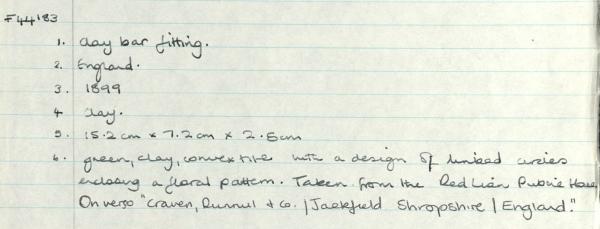 F44183
1. clay bar fitting.
2. England.
3. 1899
4 clay.
5. 15.2cm x 7.2cm x 2.5cm
6. green, clay, convex tile with a design of linked circles
enclosing a floral pattern. Taken from the Red Lion Public House
On verso "Craven, Dunnil & Co. / Jackfield Shropshire / England."